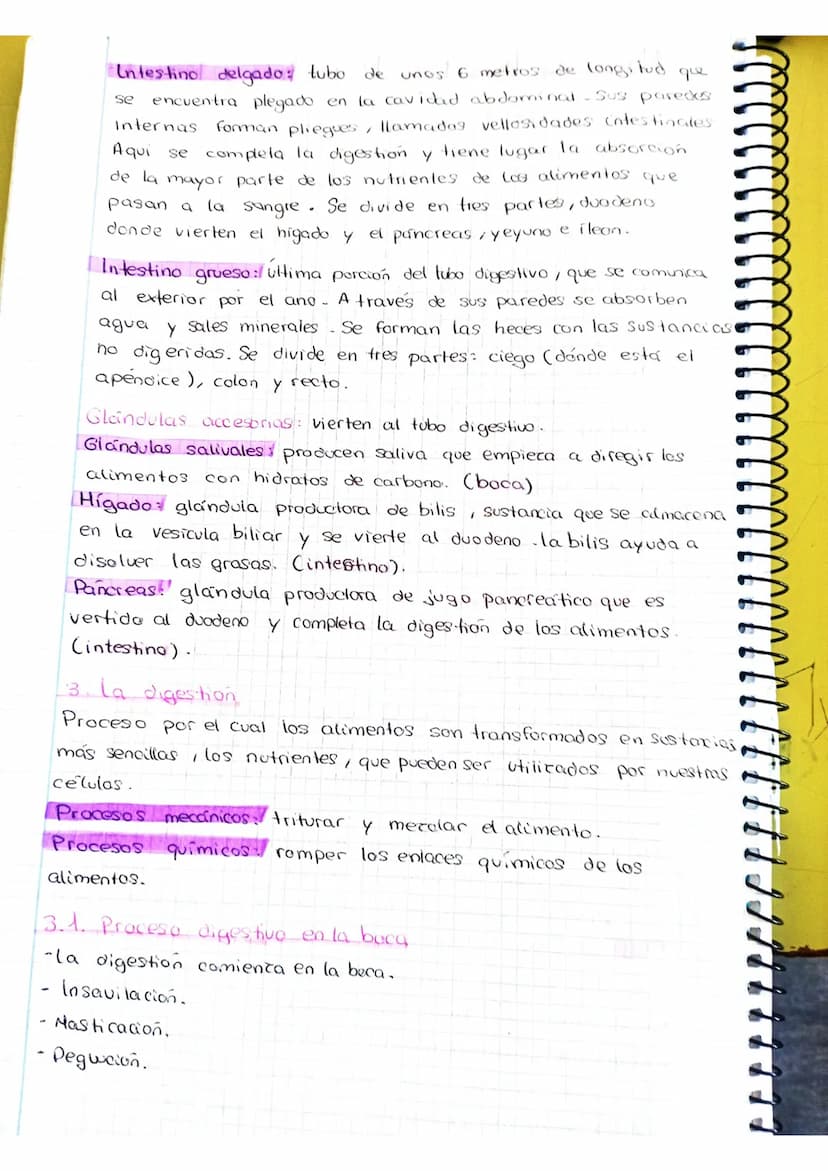 Intestino delgado: tubo de unos 6 metros de longitud que
se encuentra plegado en la cavidad abdominal. Sus paredes
internas forman pliegues, llamadas vellosidades intestinales
Aquí se completa la digestión y tiene lugar la absorción
de la mayor parte de los nutrientes de los alimentos que
pasan a la sangre. Se divide en tres partes, duodeno
donde vierten el hígado y el páncreas, yeyuno e íleon.
Intestino grueso: última porción del tubo digestivo, que se comunica
al exterior por el ano. A través de sus paredes se absorben
agua y sales minerales. Se forman las heces con las sustancias
no digeridas. Se divide en tres partes: ciego (dónde está el
apéndice), colon y recto.
Glándulas accesorias: vierten al tubo digestivo.
Glándulas salivales: producen saliva que empieca a diregir los
alimentos con hidratos de carbono. (boca)
Hígado: glándula productora de bilis, sustancia que se almacena
en la vesícula biliar y se vierte al duodeno. la bilis ayuda a
disolver las grasas. (intestino).
Páncreas: glándula productora de jugo pancreático que es
vertido al duodeno y completa la digestión de los alimentos.
(intestino).
3. La digestión
Proceso por el cual los alimentos son transformados en
más sencillas, los nutrientes, que pueden ser utilizados por nuestras
células.
Procesos mecánicos: triturar y mezclar el alimento.
Procesos químicos: romper los enlaces químicos de los
alimentos.
3.1. Proceso digestivo en la boca
-La digestión comienza en la boca.
- Insavilación.
- Masticación.
- Deglución.